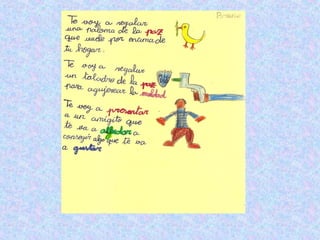 Te voy a regalar
una paloma de la paz
que vuele por encima de
tu hogar.
Te voy a regalar
un taladro de la paz
para agujerear la maldad
Te voy a presentar
a un amiguito que
te va a ayudar a
conseguir algo que te va
a gustar